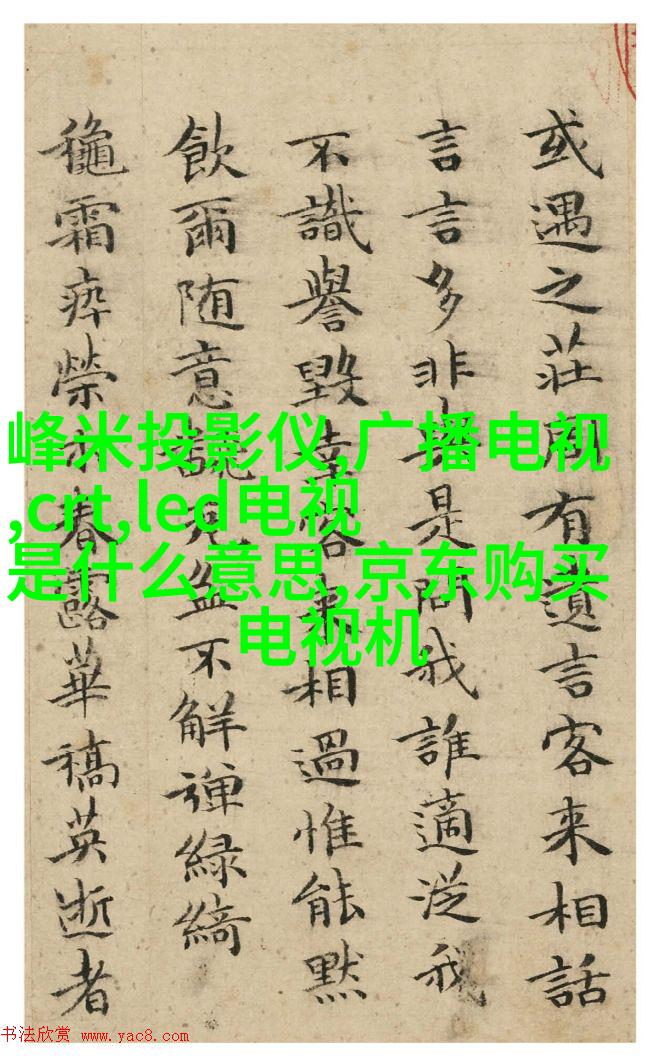 或遇之莊有遺言客来相話
言言多非是問我誰適從我
不識譽毀幸客来相過惟能默
飲爾随意不解弹緑綺
龝霜瘁榮春露華槁英逝者
峰米投影仪,广播电视
,crt,led电视
是什么意思,京东购买
电视机
书法欣赏 www.yac8.com